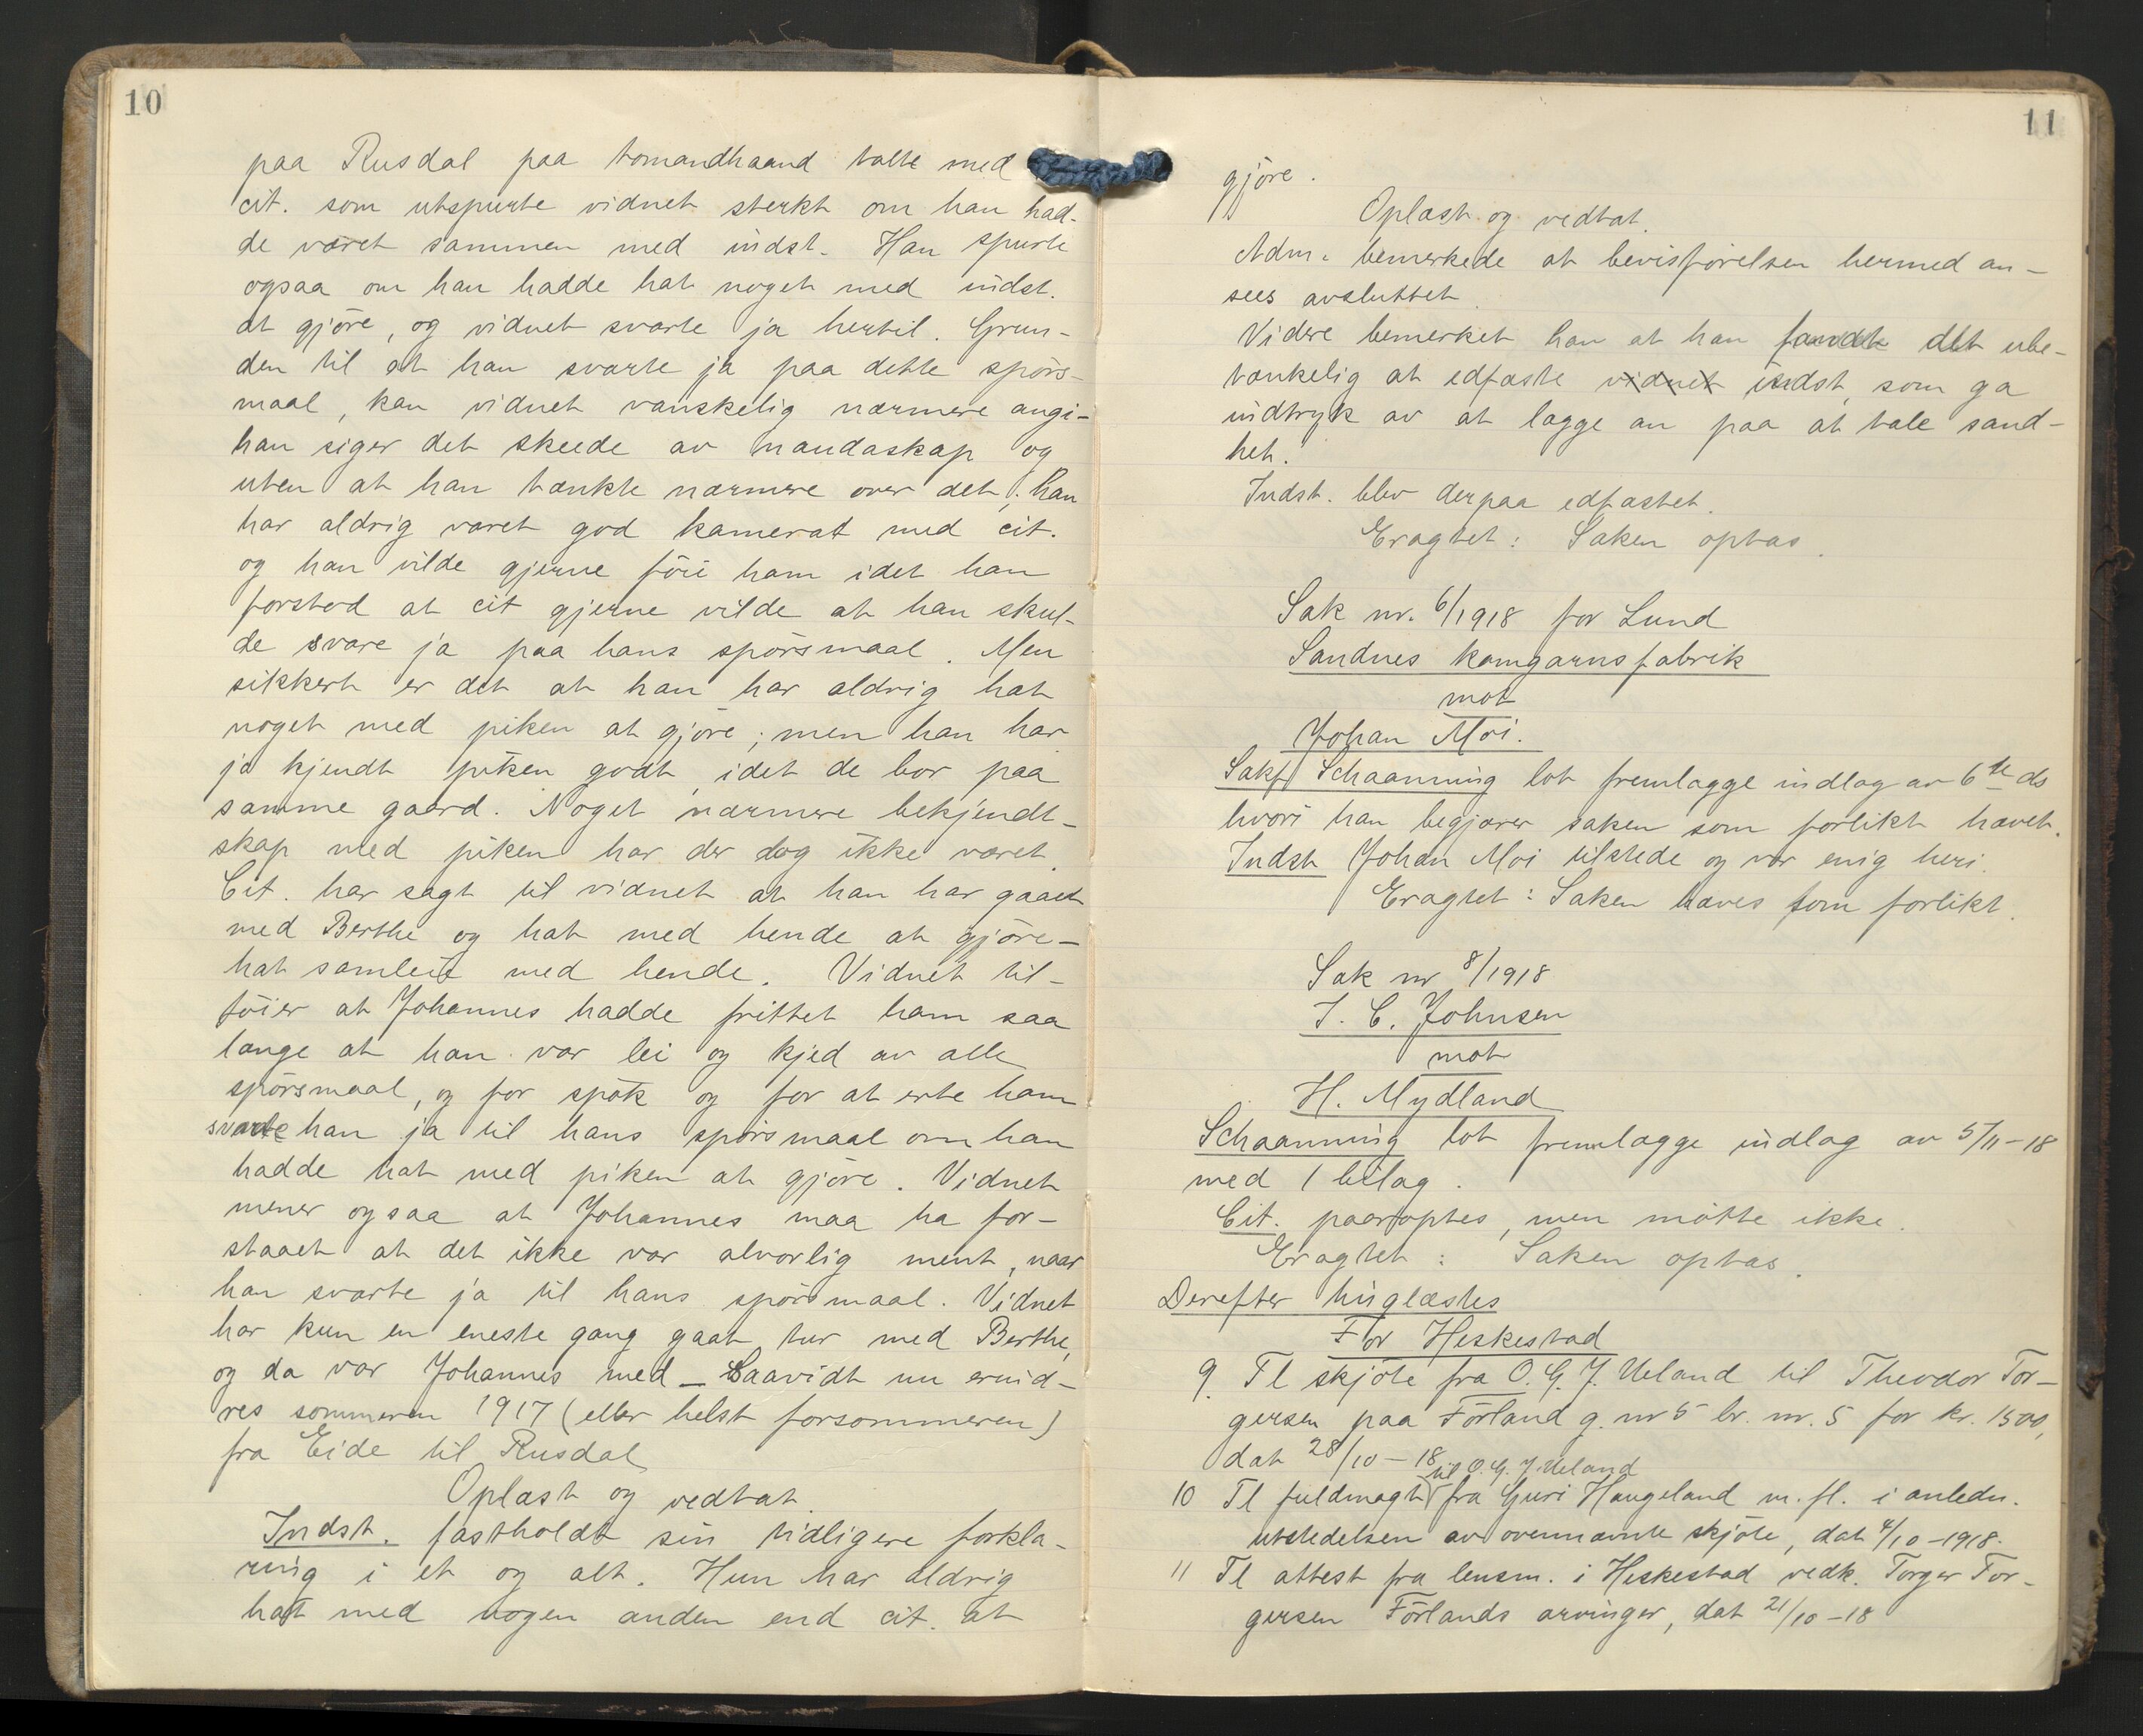 10
paa Rusdal paa tomandhaand talte med
cit. som utspurte vidnet sterkt om han had-
de været sammen med indst. Han spurte
ogsaa om han hadde hat noget med indst.
at gjöre, og vidnet svarte ja hertil. Grun-
den til at han svarte ja paa dette spörs-
maal, kan vidnet vanskelig nærmere angi-
han siger det skeede av mandaskap og
uten at han tænkte nærmere over det; han
har aldrig været god kamerat med cit.
og han vilde gjerne föie ham idet han
forstod at cit gjerne vilde at han skul-
de svare ja paa hans spörsmaal. Men
sikkert er det at han har aldrig hat
noget med piken at gjöre; men han har
jo kjendt piken godt, idet de bor paa
samme gaard. Noget nærmere bekjendt-
skap med piken har der dog ikke været.
Cit. har sagt til vidnet at han har gaaet
med Berthe og hat med hende at gjöre-
hat samleie med hende. Vidnet til-
föier at Johannes hadde frittet ham saa
længe at han var lei og kjed av alle
spörsmaal, og for spök og for at erte ham
svarte han ja til hans spörsmaal om han
hadde hat med piken at gjöre. Vidnet
mener ogsaa at Johannes maa ha for-
staaet at det ikke var alvorlig ment, naar
han svarte ja til hans spörsmaal. Vidnet
har kun en eneste gang gaat tur med Berthe,
og da var Johannes med - Saavidt nu erind-
res sommeren 1917 (eller helst forsommeren)
fra Eide til Rusdal
Oplæst og vedtat.
Indst. fastholdt sin tidligere forkla-
ring i et og alt. Hun har aldrig
hat med nogen anden end cit. at
11
gjöre.
Oplæst og vedtat.
Adm. bemerkede at bevisförelsen hermed an-
sees avsluttet.
Videre bemerket han at han fandt det ube-
tænkelig at edfæste vidnet indst, som ga
indtryk av at lægge an paa at tale sand-
het.
Indst. blev derpaa edfæstet.
Eragtet: Saken optas.
Sak nr. 6/1918 for Lund
Sandnes kamgarnsfabrik
mot
Johan Moi.
Sakf Schaanning lot fremlægge indlæg av 6te ds
hvori han begjærer saken som forlikt hævet.
Indst Johan Moi tilstede og var enig heri.
Eragtet: Saken hæves som forlikt.
Sak nr 8/1918
J. C. Johnsen
mot
H. Mydland
Schaanning lot fremlægge indlæg av 5/11-18
med 1 bilag.
Cit. paaroptes, men mötte ikke.
Eragtet: Saken optas.
Derefter tinglæstes
For Heskestad
9. Tl skjöte fra O. G. J. Ueland til Theodor Tor-
gersen paa Förland g. nr 5 br. nr. 5 for kr. 1500,
dat 28/10-18
til O. G. J. Ueland
10 Tl fuldmagt fra Guri Haugeland m. fl. i anledn.
utstedelsen av ovennævnte skjöte, dat 4/10-1918.
11 Tl attest fra lensm. i Heskestad vedk. Torger Tor-
gersen Förlands arvinger, dat 21/10-18